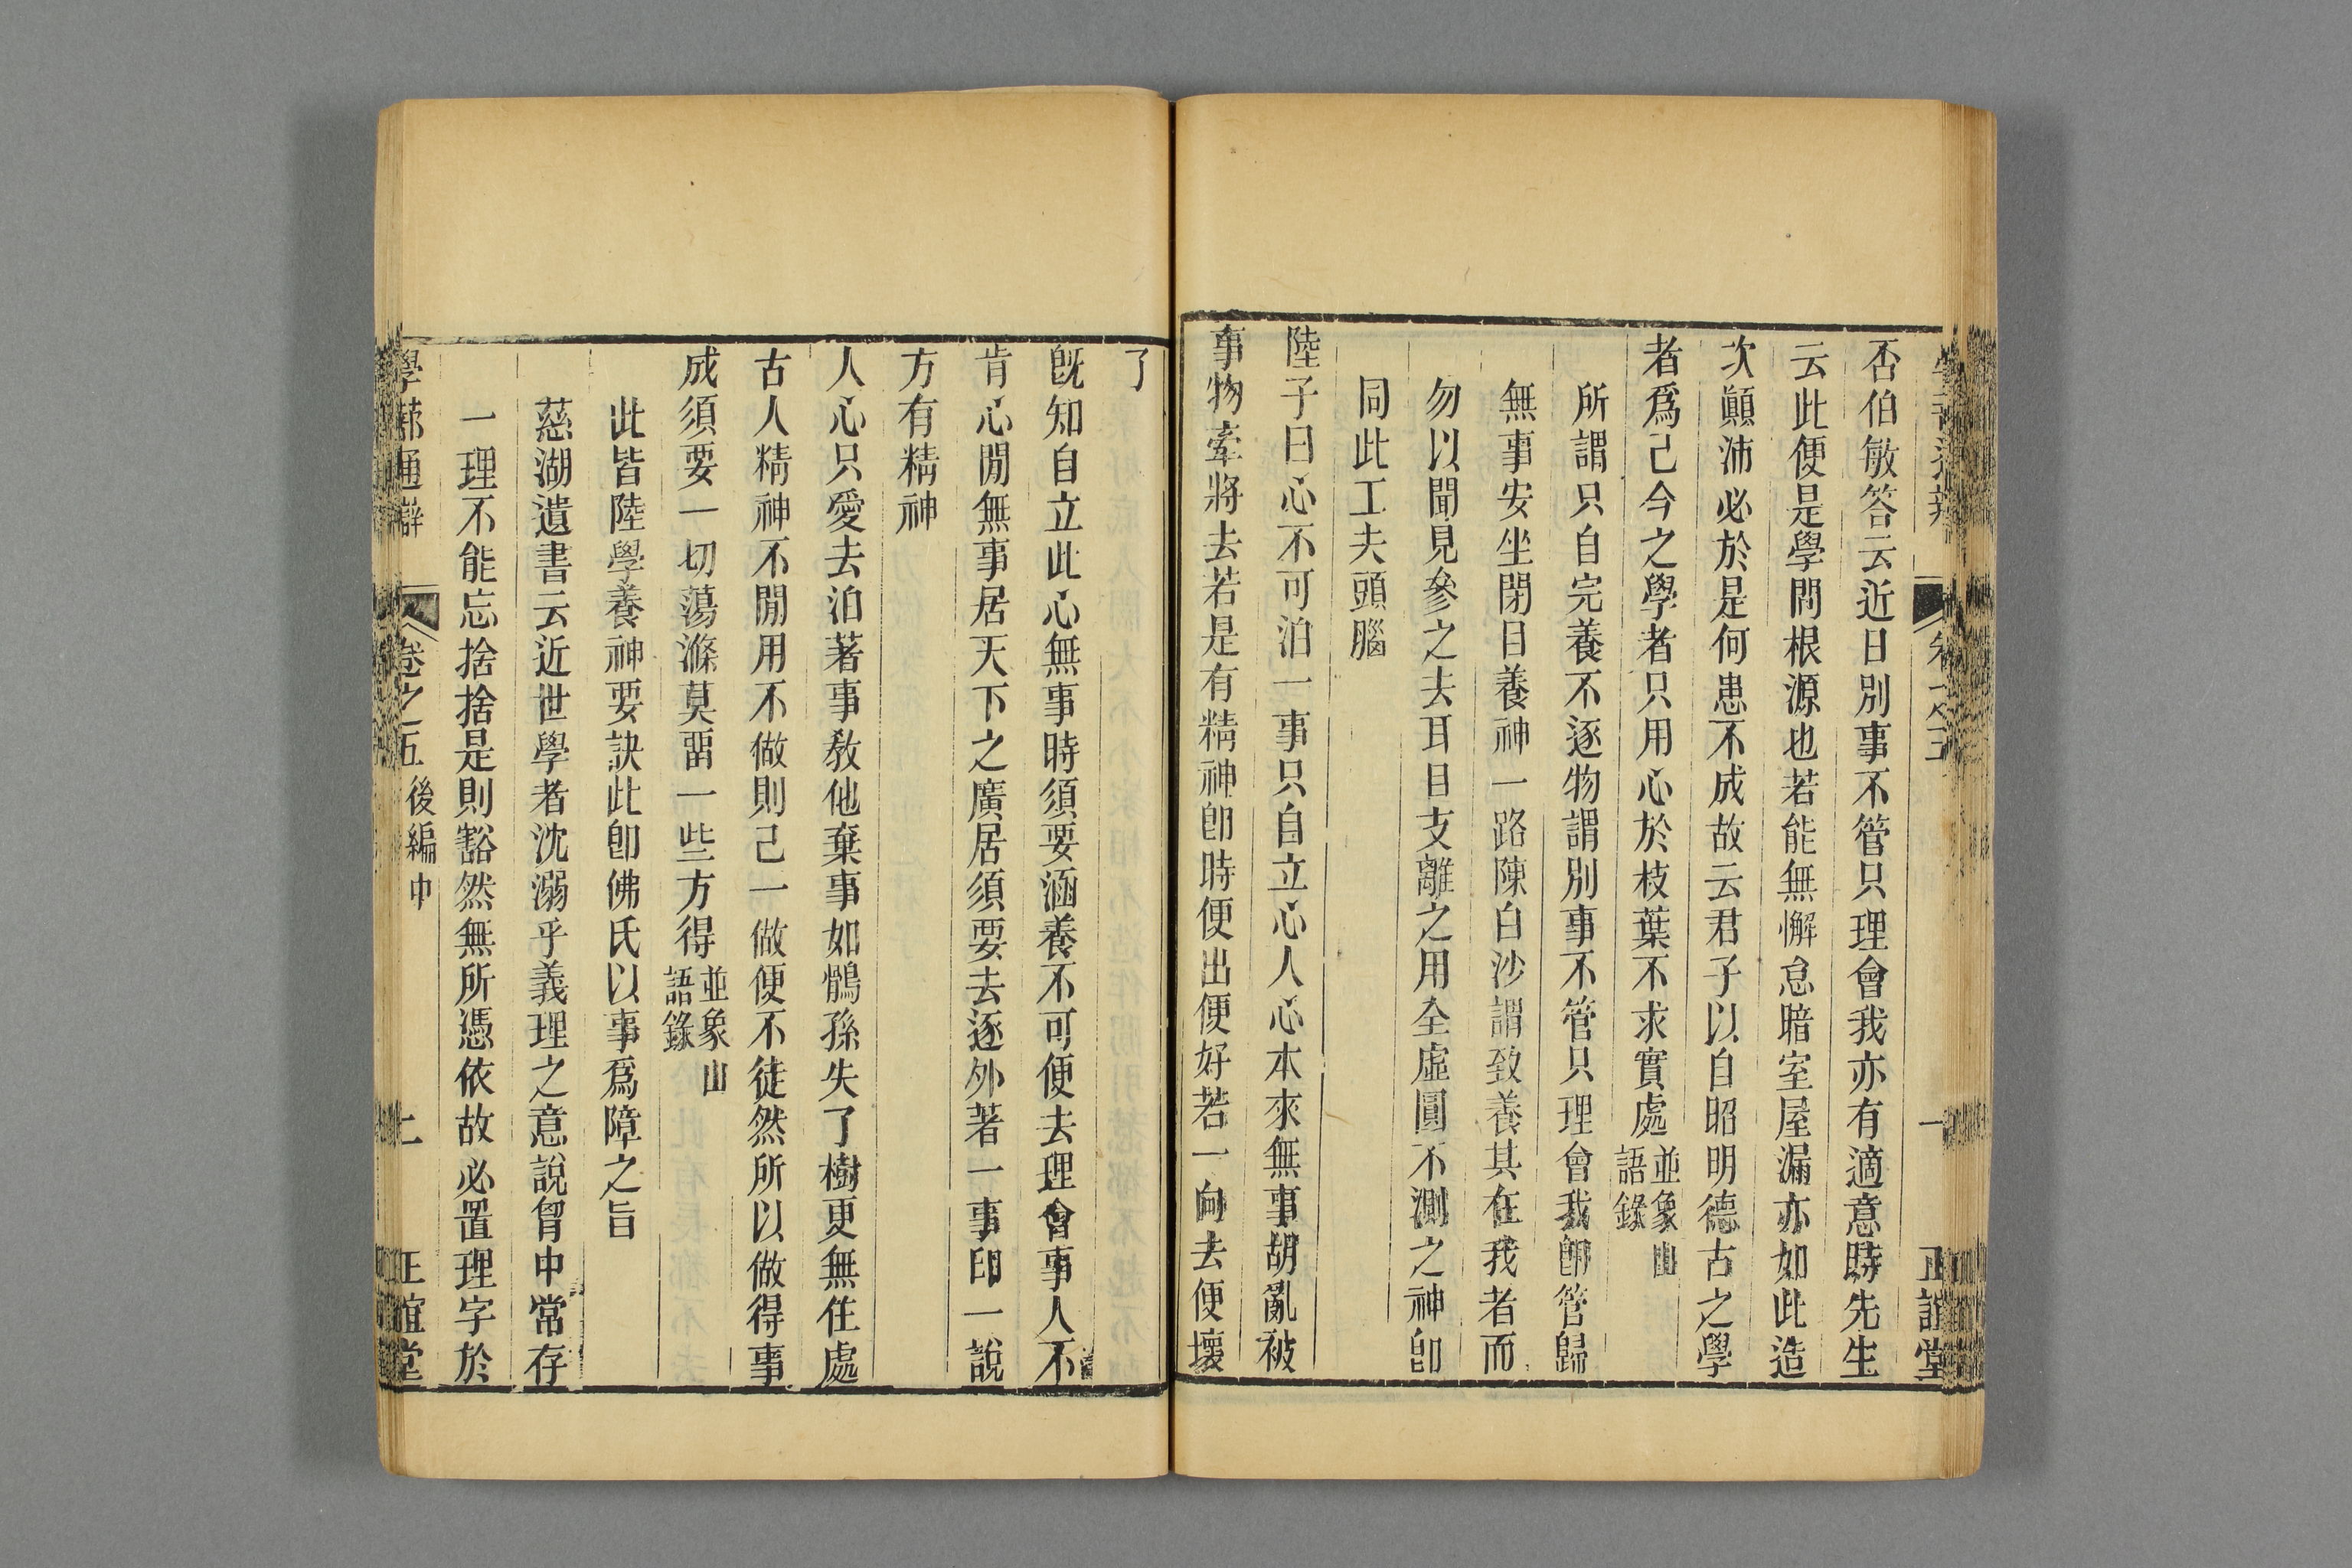 否伯敏答云近日別事不管只理會我亦有適意時先生
云此便是學問根源也若能無懈怠暗室屋漏亦如此造
次顚沛必於是何患不成故云君子以自昭明德古之學
者爲己今之學者只用心於枝葉不求實處並象山語錄
所謂只自完養不逐物謂別事不管只理會我卽管歸
無事安坐閉目養神一路陳白沙謂致養其在我者而
勿以聞見參之去耳目支離之用全虛圓不測之神卽
同此工夫頭腦
陸子曰心不可泊一事只自立心人心本來無事胡亂被
事物牽將去若是有精神卽時便出便好若一向去便壞
了
旣知自立此心無事時須要涵養不可便去理會事人不
肯心閒無事居天下之廣居須要去逐外著一事印一說
方有精神
人心只愛去泊著事敎他棄事如鶻孫失了樹更無住處
古人精神不閒用不做則已一做便不徒然所以做得事
成須要一切蕩滌莫畱一些方得並象山語錄
此皆陸學養神要訣此卽佛氏以事爲障之旨
慈湖遺書云近世學者沈溺乎義理之意說胷中常存
一理不能忘捨捨是則豁然無所憑依故必置理字於
學蔀通辯 卷之五 後編中 七 正誼堂